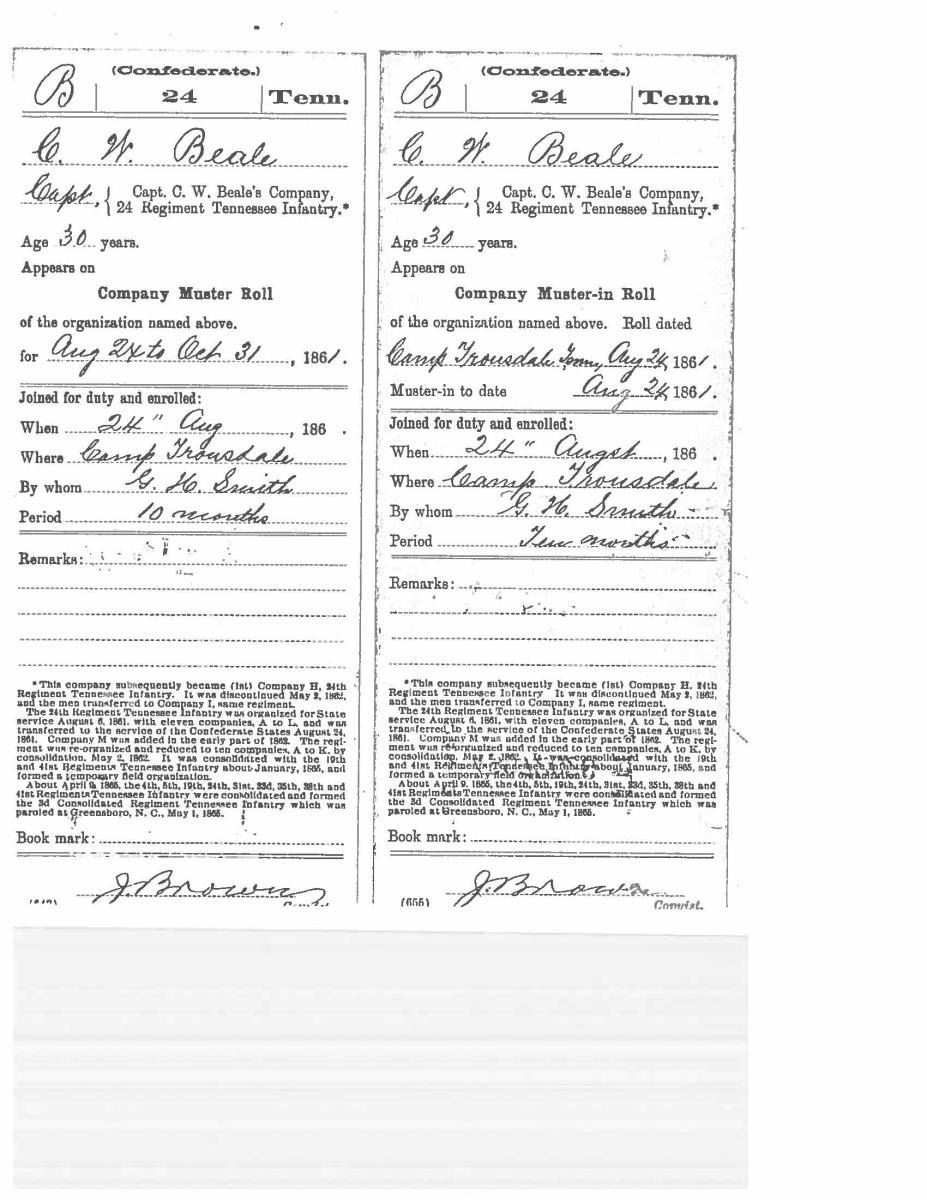 (Confederate.)
B | 24 | Tenn.
C. W. Beale
Capt., { Capt. C. W. Beale's Company,
24 Regiment Tennessee Infantry.*
Age 30 years.
Appears on
Company Muster Roll
of the organization named above.
for Aug 24 to Oct 31, 1861.
Joined for duty and enrolled:
When 24" Aug, 186 .
Where Camp Trousdale
By whom G. H. Smith
Period 10 months
Remarks:
*This company subsequently became (1st) Company H, 24th
Regiment Tennessee Infantry. It was discontinued May 2, 1862,
and the men transferred to Company I, same regiment.
The 24th Regiment Tennessee Infantry was organized for State
service August 6, 1861, with eleven companies, A to L, and was
transferred to the service of the Confederate States August 24,
1861. Company M was added in the early part of 1862. The regi-
ment was re-organized and reduced to ten companies, A to K, by
consolidation, May 2, 1862. It was consolidated with the 19th
and 41st Regiments Tennessee Infantry about January, 1865, and
formed a temporary field organization.
About April 9, 1865, the 4th, 5th, 19th, 24th, 31st, 33d, 35th, 38th and
41st Regiments Tennessee Infantry were consolidated and formed
the 3d Consolidated Regiment Tennessee Infantry which was
paroled at Greensboro, N. C., May 1, 1865.
Book mark:
J. Brown
(Confederate.)
B | 24 | Tenn.
C. W. Beale
Capt., { Capt. C. W. Beale's Company,
24 Regiment Tennessee Infantry.*
Age 30 years.
Appears on
Company Muster-in Roll
of the organization named above. Roll dated
Camp Trousdale Tenn, Aug 24, 1861.
Muster-in to date Aug 24, 1861.
Joined for duty and enrolled:
When 24" Augst, 186 .
Where Camp Trousdale
By whom G. H. Smith
Period Ten months
Remarks:
*This company subsequently became (1st) Company H, 24th
Regiment Tennessee Infantry It was discontinued May 2, 1862,
and the men transferred to Company I, same regiment.
The 24th Regiment Tennessee Infantry was organized for State
service August 6, 1861, with eleven companies, A to L, and was
transferred to the service of the Confederate States August 24,
1861. Company M was added in the early part of 1862. The regi-
ment was re-organized and reduced to ten companies, A to K, by
consolidation, May 2, 1862. It was consolidated with the 19th
and 41st Regiments Tennessee Infantry about January, 1865, and
formed a temporary field organization.
About April 9, 1865, the 4th, 5th, 19th, 24th, 31st, 33d, 35th, 38th and
41st Regiments Tennessee Infantry were consolidated and formed
the 3d Consolidated Regiment Tennessee Infantry which was
paroled at Greensboro, N. C., May 1, 1865.
Book mark:
J. Brown
(656) Copyist.